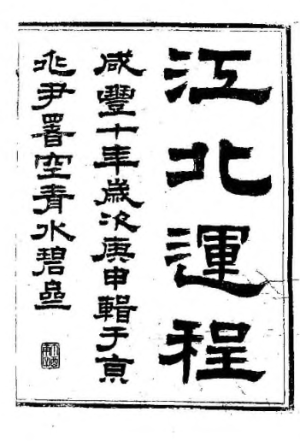 江北運程
咸豐十年歲次庚申輯于亰
兆尹署空青水碧亝